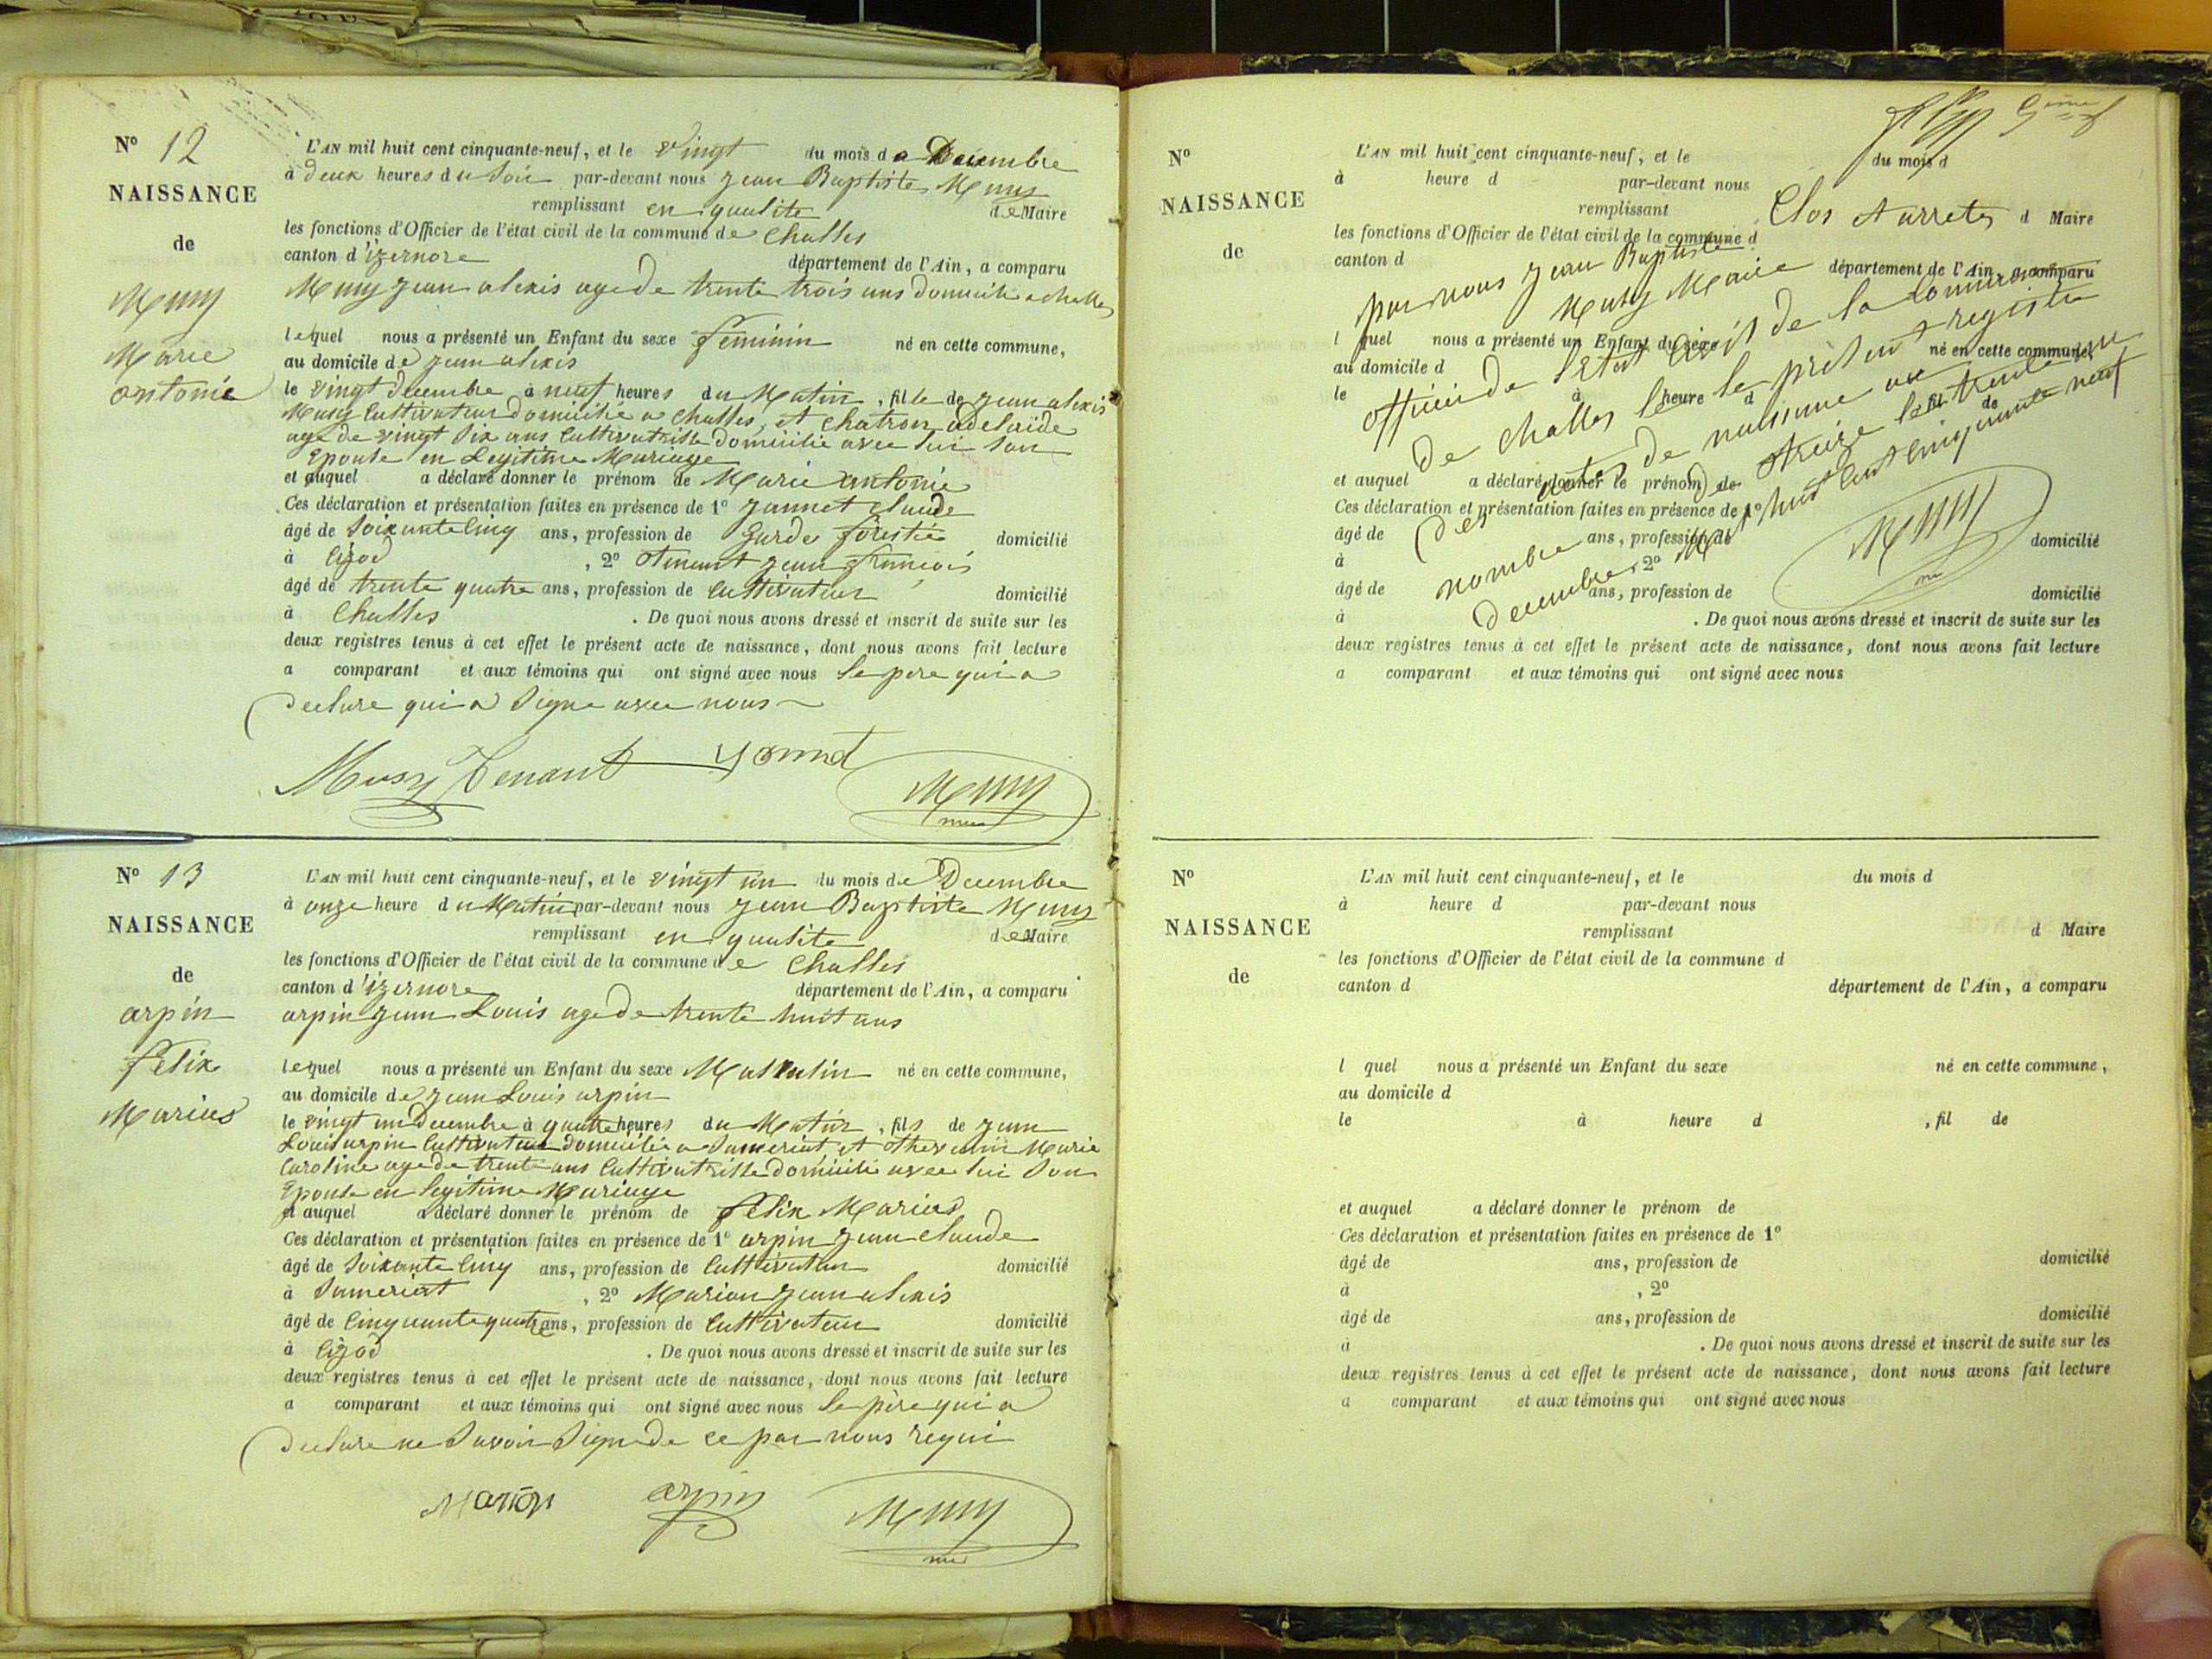 N° 12
NAISSANCE
de
Musy
Marie
antonie
L'AN mil huit cent cinquante-neuf, et le vingt du mois de Decembre
à deux heures du Soir par-devant nous jean Baptiste Musy
remplissant en qualite de Maire
les fonctions d'Officier de l'état civil de la commune de Challes
canton d'izernore département de l'Ain, a comparu
Musy jean alexis age de trente trois ans domicilie a challes
lequel nous a présenté un Enfant du sexe feminin né en cette commune,
au domicile de jean alexis
le vingt decembre à neuf heures du Matin, fille de jean alexis
Musy Cultivateur domicilié a Challes, et Chatron adelaide
age de vingt Six ans Cultivatrisse domicilie avec lui Son
Epouse en Legitime Mariage
et auquel a déclaré donner le prénom de Marie antonie
Ces déclaration et présentation faites en présence de 1° jannet claude
âgé de Soixante Cinq ans, profession de garde forestie domicilié
à Cizod, 2° tenant jean francois
âgé de trente quatre ans, profession de Cultivateur domicilié
à Challes. De quoi nous avons dressé et inscrit de suite sur les
deux registres tenus à cet effet le présent acte de naissance, dont nous avons fait lecture
a comparant et aux témoins qui ont signé avec nous Le pere qui a
declare qui a Signe avec nous
Musy Tenant Musy
N° 13
NAISSANCE
de
arpin
felix
Marius
L'AN mil huit cent cinquante-neuf, et le vingt un du mois de Decembre
à onze heure du Matin par-devant nous jean Baptiste Musy
remplissant en qualite de Maire
les fonctions d'Officier de l'état civil de la commune de Challes
canton d'izernore département de l'Ain, a comparu
arpin jean Louis age de trente huit ans
lequel nous a présenté un Enfant du sexe Masculin né en cette commune,
au domicile de jean Louis arpin
le vingt un decembre à quatre heures du Matin, fils de jean
Louis arpin Cultivateur domicilié a Sameriat, et Marie
Caroline age de trente ans Cultivatrisse domicilie avec lui Son
Epouse en legitime Mariage
et auquel a déclaré donner le prénom de felix Marius
Ces déclaration et présentation faites en présence de 1° arpin jean claude
âgé de Soixante Cinq ans, profession de Cultivateur domicilié
à Sameriat, 2° Marion jean alexis
âgé de Cinquante quatre ans, profession de Cultivateur domicilié
à Cizod. De quoi nous avons dressé et inscrit de suite sur les
deux registres tenus à cet effet le présent acte de naissance, dont nous avons fait lecture
a comparant et aux témoins qui ont signé avec nous Le père qui a
declare ne Savoir Signe de ce par nous requi
Marion arpin Musy
N°
NAISSANCE
de
L'AN mil huit cent cinquante-neuf, et le du mois d
à heure d par-devant nous
remplissant d Maire
les fonctions d'Officier de l'état civil de la commune d
canton d département de l'Ain, a comparu
l quel nous a présenté un Enfant du sexe né en cette commune,
au domicile d
le à heure d, fil de
et auquel a déclaré donner le prénom de
Ces déclaration et présentation faites en présence de 1°
âgé de ans, profession de domicilié
à, 2°
âgé de ans, profession de domicilié
à. De quoi nous avons dressé et inscrit de suite sur les
deux registres tenus à cet effet le présent acte de naissance, dont nous avons fait lecture
a comparant et aux témoins qui ont signé avec nous
Clos et arrete
par nous jean Baptiste
Musy Maire
officier de l'Etat Civil de la Commune
de Challes le present registre
des actes de naissance au
nombre de treize le trente un
decembre Mil huit Cent Cinquante neuf
Musy
N°
NAISSANCE
de
L'AN mil huit cent cinquante-neuf, et le du mois d
à heure d par-devant nous
remplissant d Maire
les fonctions d'Officier de l'état civil de la commune d
canton d département de l'Ain, a comparu
l quel nous a présenté un Enfant du sexe né en cette commune,
au domicile d
le à heure d, fil de
et auquel a déclaré donner le prénom de
Ces déclaration et présentation faites en présence de 1°
âgé de ans, profession de domicilié
à, 2°
âgé de ans, profession de domicilié
à. De quoi nous avons dressé et inscrit de suite sur les
deux registres tenus à cet effet le présent acte de naissance, dont nous avons fait lecture
a comparant et aux témoins qui ont signé avec nous